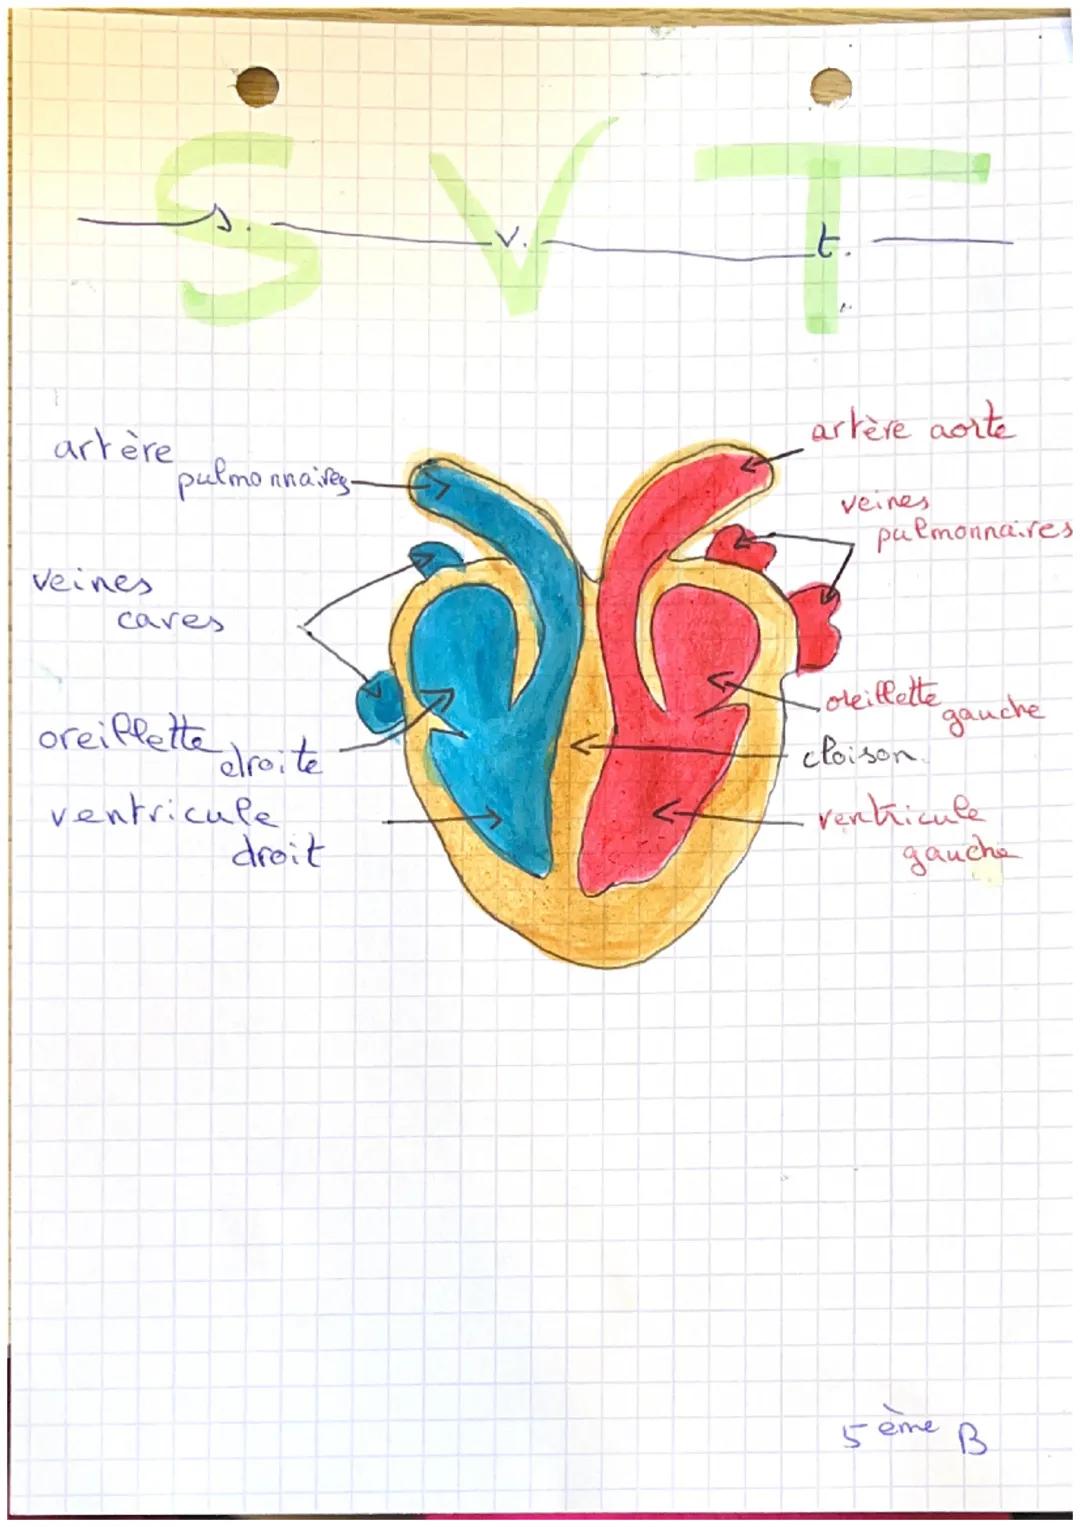 S V T
s. v. t.
artère
pulmonnaires
veines
caves
oreillette
droite
ventricule
droit
artère aorte
veines
pulmonnaires
oreillette
gauche
cloison
ventricule
gauche
5 ème B